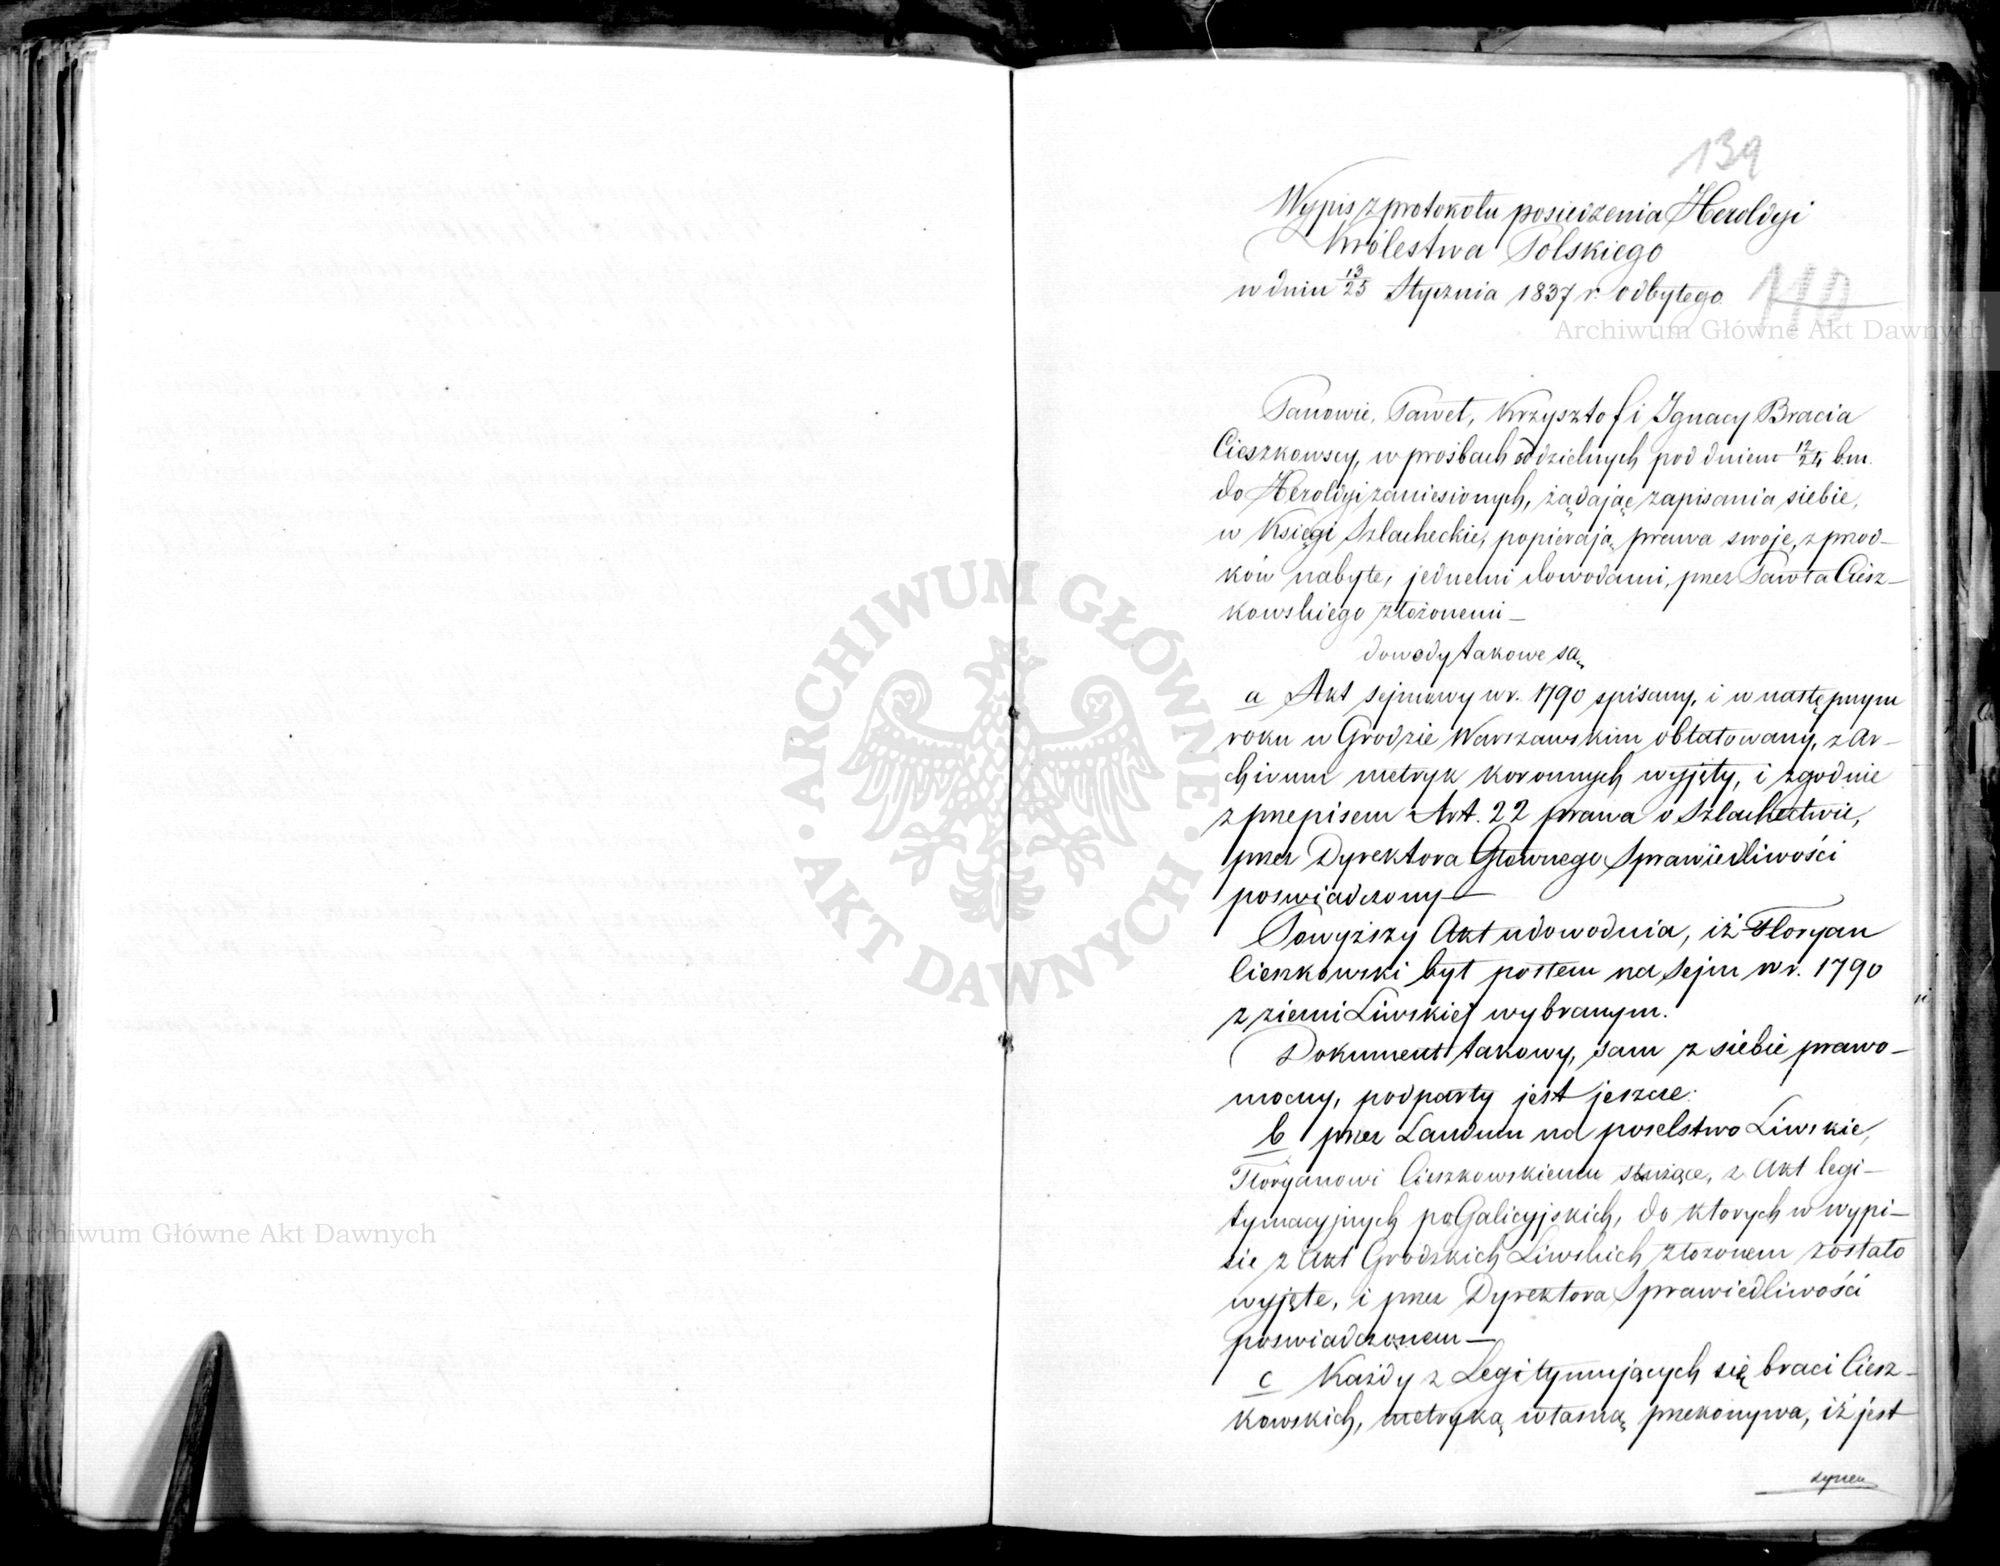 139
Wypis z protokołu posiedzenia Heroldyi
Królestwa Polskiego
w dniu 13/25 Stycznia 1837 r. odbytego.
110
Archiwum Główne Akt Dawnych
Panowie, Paweł, Krzysztof i Ignacy Bracia
Cieszkowscy, w prośbach oddzielnych pod dniem 12/24 b.m.
do Heroldyi zaniesionych, żądając zapisania siebie,
w Księgi Szlacheckie, popierają prawa swoje, z przod-
ków nabyte, jednemi dowodami, przez Pawła Ciesz-
kowskiego złożonemi —
dowody takowe są
a Akt sejmowy w r. 1790 spisany, i w następnym
roku w Grodzie Warszawskim oblatowany, z Ar-
chivum metryk koronnych wyjęty, i zgodnie
z przepisem Art. 22 prawa o Szlachectwie,
przez Dyrektora Głównego Sprawiedliwości
poswiadczony —
Powyższy Akt udowodnia, iż Floryan
Cieszkowski był posłem na Sejm w r. 1790
z ziemi Liwskiej wybranym.
Dokument takowy, sam z siebie prawo-
mocny, podparty jest jeszcze:
b przez Laudum na poselstwo Liwskie,
Floryanowi Cieszkowskiemu służące, z Akt legi-
tymacyjnych po Galicyjskich, do ktorych w wypi-
sie z Akt Grodzkich Liwskich złozonem zostało
wyjęte, i przez Dyrektora Sprawiedliwości
poswiadczonem —
c Każdy z Legitymujących się braci Ciesz-
kowskich, metryką własną przekonywa, iż jest
synem
ARCHIWUM GŁÓWNE · AKT DAWNYCH ·
Archiwum Główne Akt Dawnych